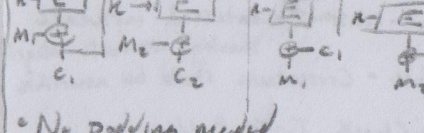 K E K → E K- E K- E
M₁ M₂ C₁
C₁ C₂ M₁ M₂
• No padding needed